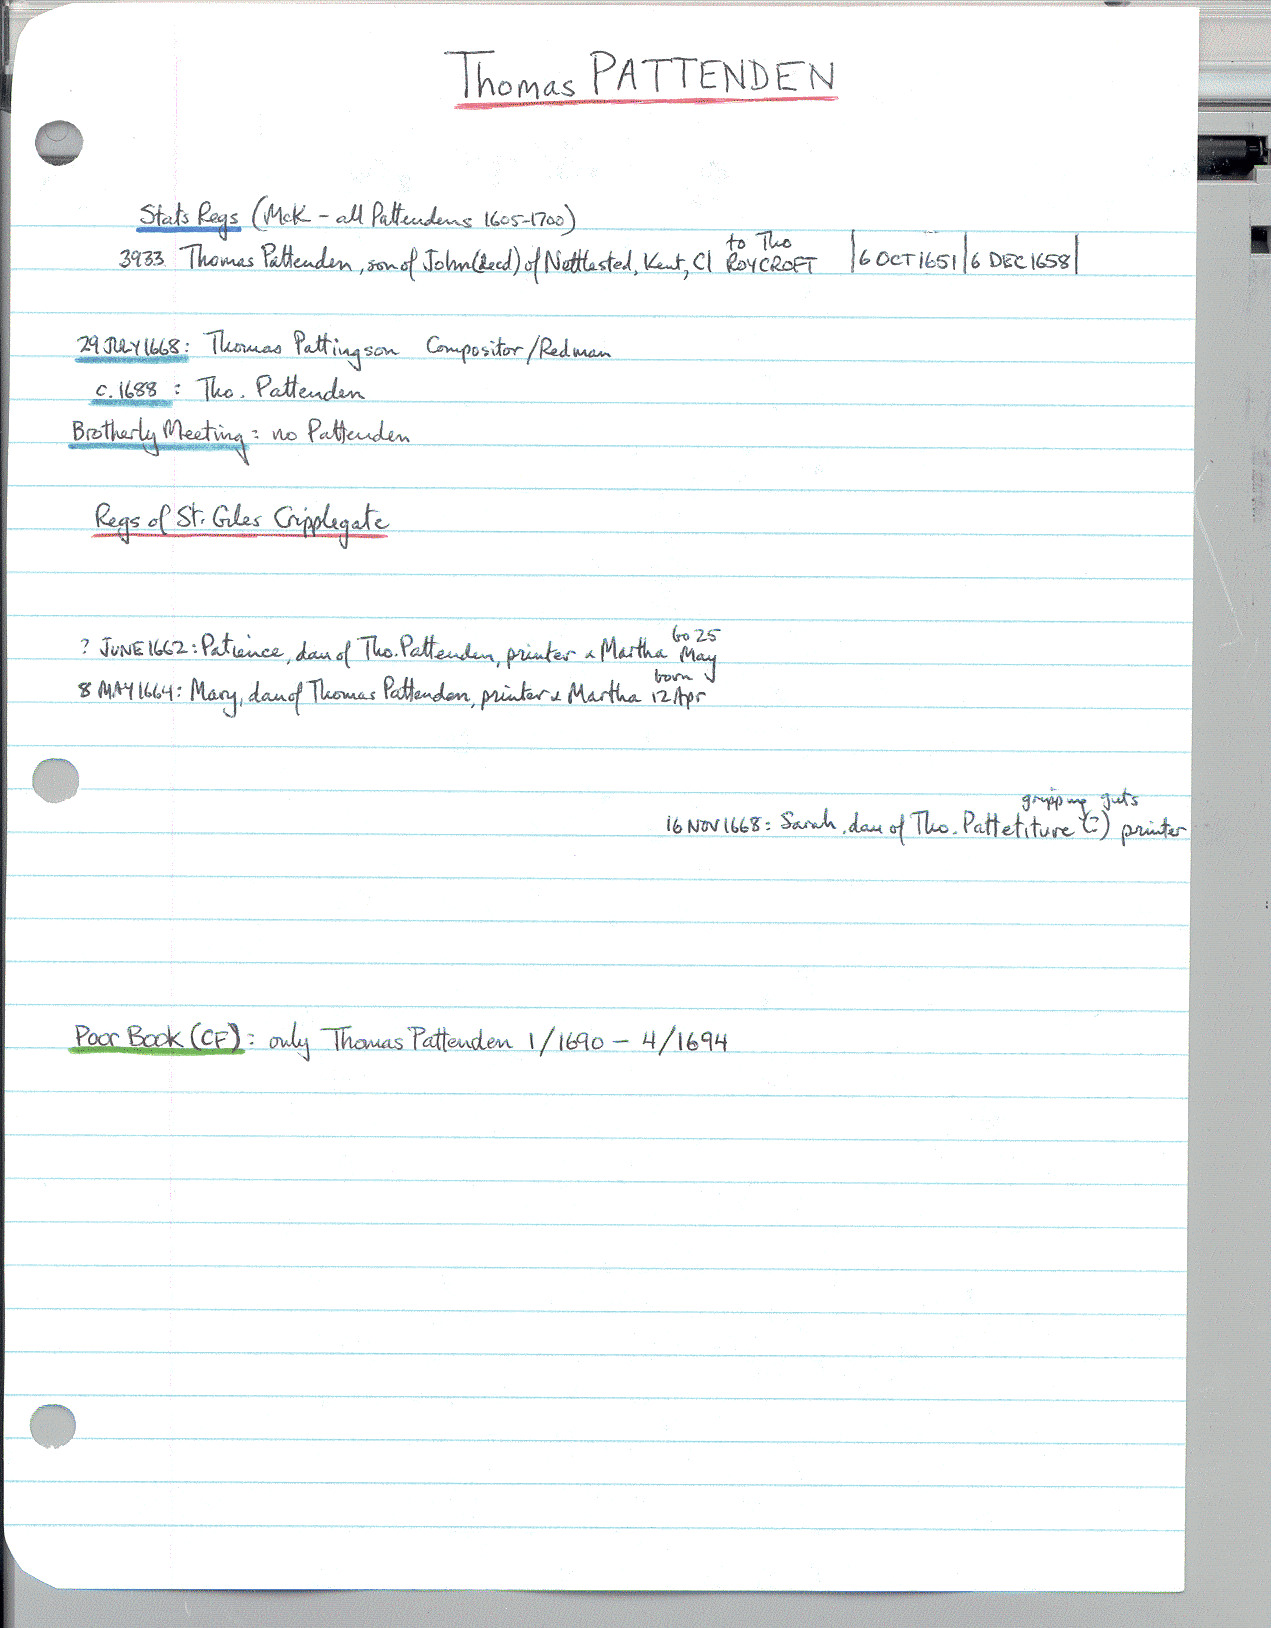 Thomas PATTENDEN
Stats Regs (McK - all Pattendens 1605-1700)
3933 Thomas Pattenden, son of John (decd) of Nettlested, Kent, Cl to Tho ROYCROFT | 6 OCT 1651 | 6 DEC 1658 |
29 JULY 1668: Thomas Pattingson Compositor/Redman
c. 1688: Tho. Pattenden
Brotherly Meeting: no Pattenden
Regs of St. Giles Cripplegate
? JUNE 1662: Patience, dau of Tho. Pattenden, printer & Martha bo 25 May
8 MAY 1664: Mary, dau of Thomas Pattenden, printer & Martha born 12 Apr
gripping guts
16 NOV 1668: Sarah, dau of Tho. Pattetiture (?) printer
Poor Book (CF): only Thomas Pattenden 1/1690 - 4/1694